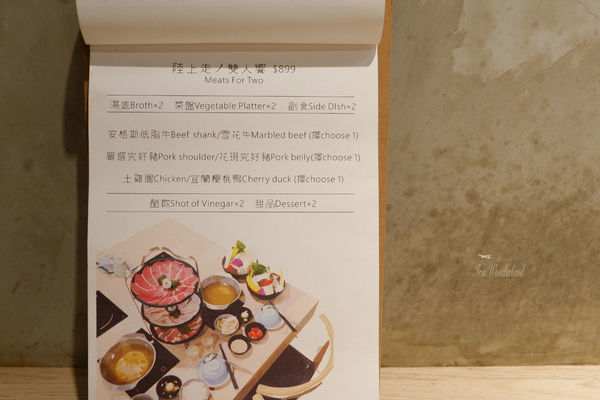 陸上走ノ雙人饗 $899
Meats For Two
湯底Broth×2 菜盤Vegetable Platter×2 副食Side DIsh×2
安格斯低脂牛Beef shank/雪花牛Marbled beef (擇choose 1)
嚴選究好豬Pork shoulder/花現究好豬Pork belly(擇choose 1)
土雞腿Chicken/宜蘭櫻桃鴨Cherry duck (擇choose 1)
醋飲Shot of Vinegar×2 甜品Dessert×2
Iris Wonderland